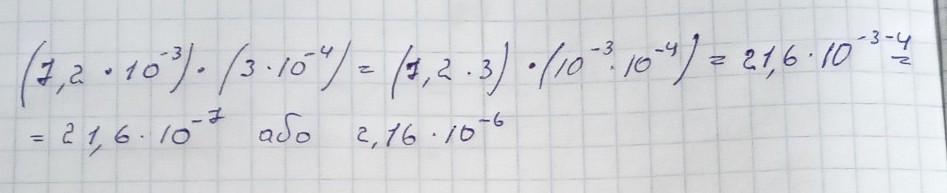 (7,2 · 10⁻³) · (3 · 10⁻⁴) = (7,2 · 3) · (10⁻³ · 10⁻⁴) = 21,6 · 10⁻³⁻⁴ =
= 21,6 · 10⁻⁷ або 2,16 · 10⁻⁶